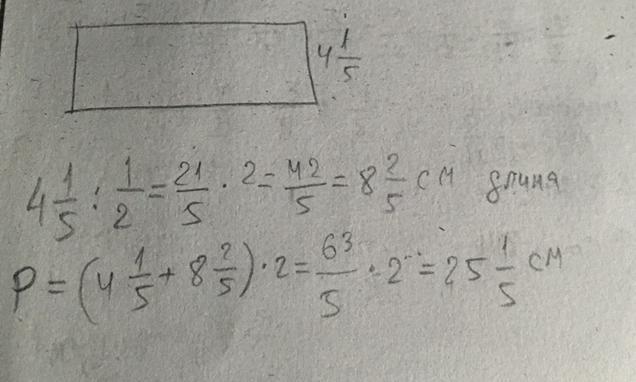 4 1/5
4 1/5 : 1/2 = 21/5 · 2 = 42/5 = 8 2/5 см длина
P = (4 1/5 + 8 2/5) · 2 = 63/5 · 2 = 25 1/5 см